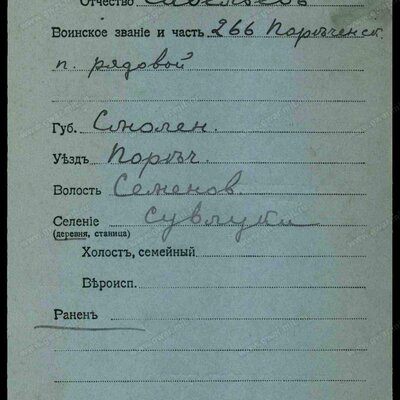 Отчество Савельевъ
Воинское званіе и часть 266 Порѣченск.
п. рядовой
Губ. Смолен.
Уѣздъ Порѣч.
Волость Семенов.
Селеніе Сувлуки
(деревня, станица)
Холостъ, семейный
Вѣроисп.
Раненъ